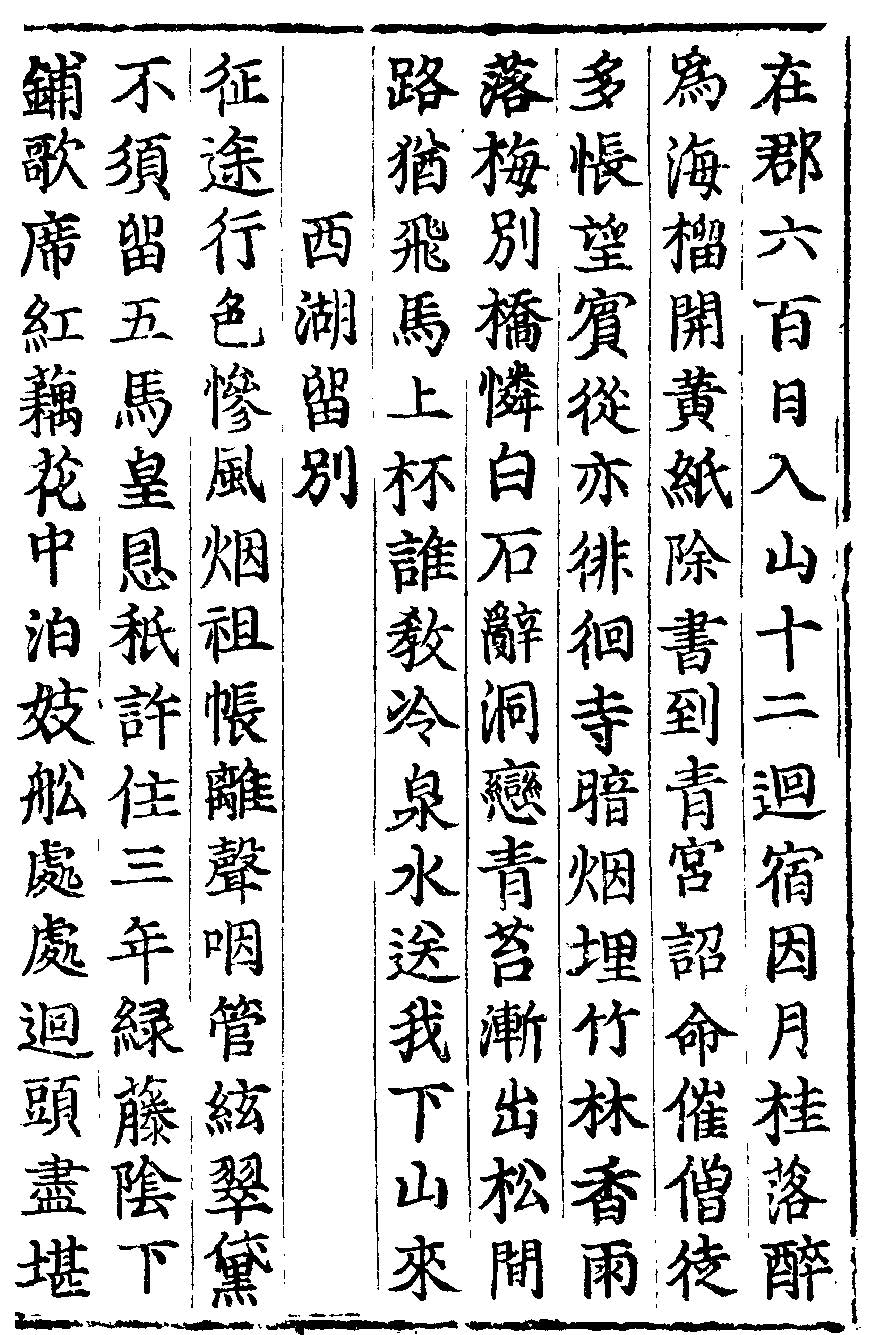 在郡六百日入山十二迴宿因月桂落醉
爲海榴開黄紙除書到青宮詔命催僧徒
多悵望賓從亦徘徊寺暗烟埋竹林香雨
落梅別橋憐白石辭洞戀青苔漸出松間
路猶飛馬上杯誰教冷泉水送我下山來
西湖留別
征途行色慘風烟祖帳離聲咽管絃翠黛
不須留五馬皇恩秖許住三年緑藤陰下
鋪歌席紅藕花中泊妓舩處處迴頭盡堪